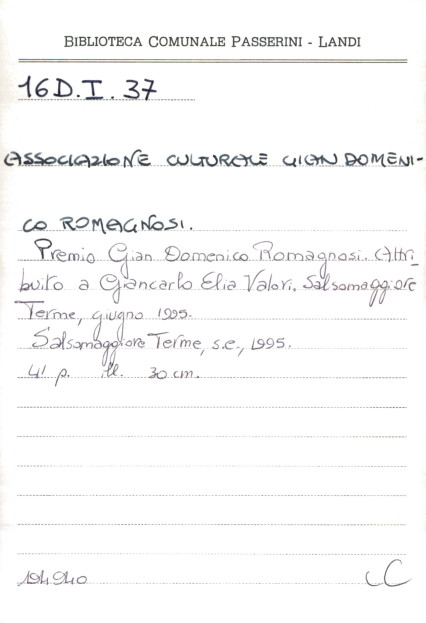 BIBLIOTECA COMUNALE PASSERINI - LANDI
16D.I.37
ASSOCIAZIONE CULTURALE GIAN DOMENI-
CO ROMAGNOSI.
Premio Gian Domenico Romagnosi. Attri-
buito a Giancarlo Elia Valori. Salsomaggiore
Terme, giugno 1995.
Salsomaggiore Terme, s.e., 1995.
41 p. ill. 30 cm.
194940